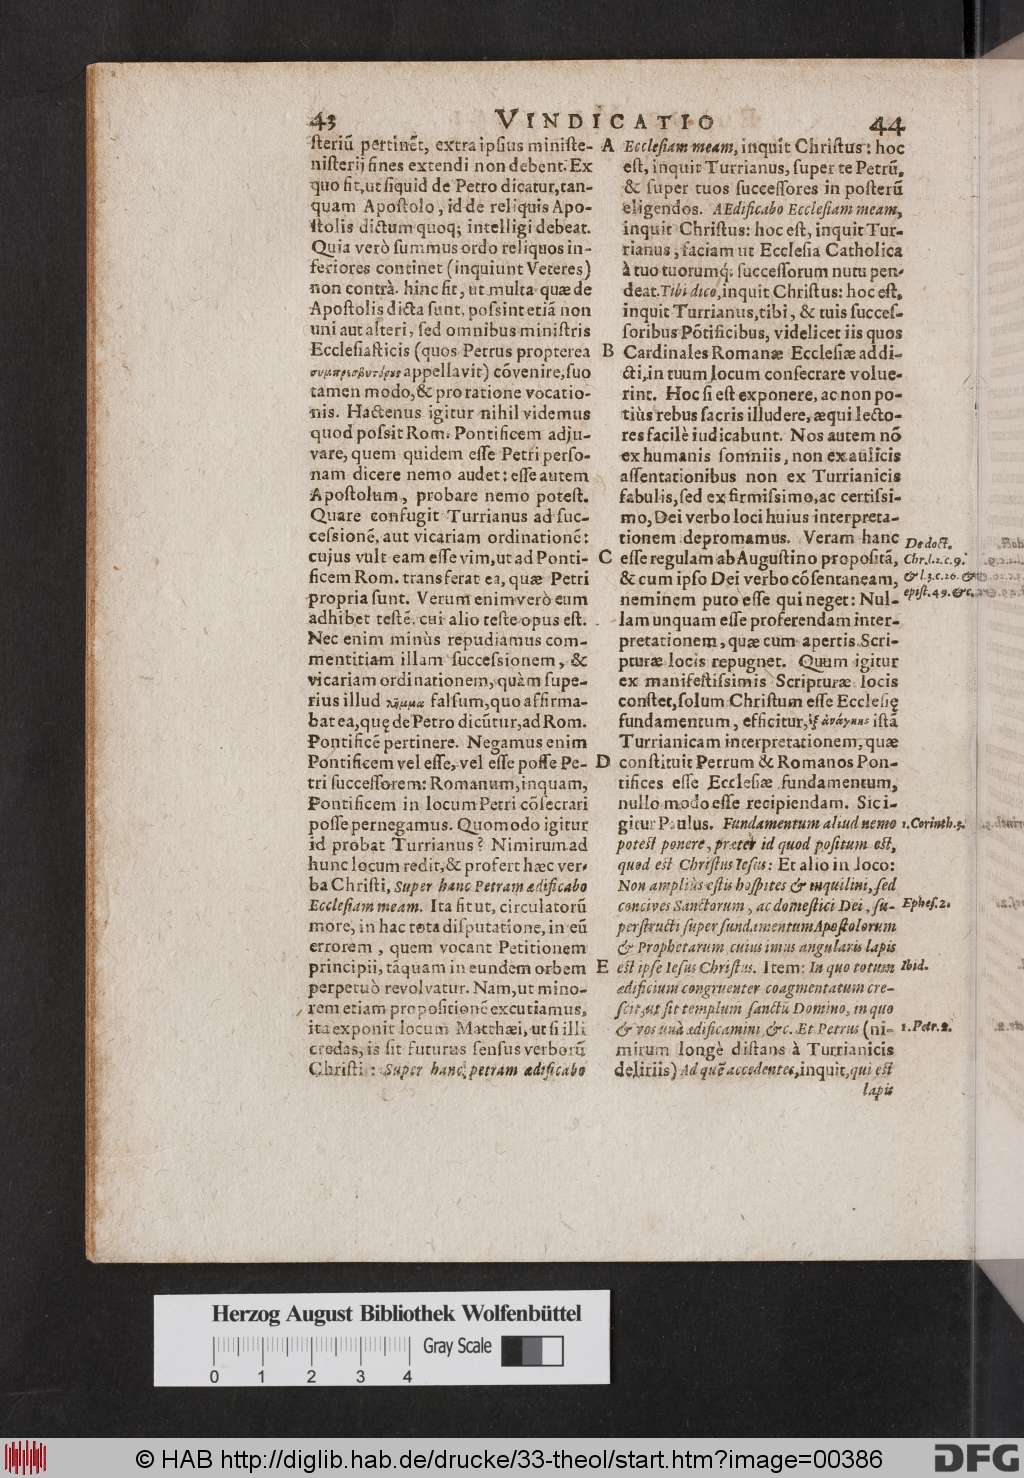 43
VINDICATIO
44
steriū pertinēt, extra ipsius ministe-
nisterij fines extendi non debent. Ex
quo fit, ut siquid de Petro dicatur, tan-
quam Apostolo, id de reliquis Apo-
stolis dictum quoq; intelligi debeat.
Quia verò summus ordo reliquos in-
feriores continet (inquiunt Veteres)
non contrà. hinc fit, ut multa quæ de
Apostolis dicta sunt, possint etiā non
uni aut alteri, sed omnibus ministris
Ecclesiasticis (quos Petrus propterea
appellavit) cōvenire, suo
tamen modo, & pro ratione vocatio-
nis. Hactenus igitur nihil videmus
quod possit Rom. Pontificem adju-
vare, quem quidem esse Petri perso-
nam dicere nemo audet: esse autem
Apostolum, probare nemo potest.
Quare confugit Turrianus ad suc-
cessionē, aut vicariam ordinationē:
cujus vult eam esse vim, ut ad Ponti-
ficem Rom. transferat ea, quæ Petri
propria sunt. Verum enimverò eum
adhibet testē, cui alio teste opus est.
Nec enim minùs repudiamus com-
mentitiam illam successionem, &
vicariam ordinationem, quàm supe-
rius illud λῆμμα falsum, quo affirma-
bat ea, quę de Petro dicūtur, ad Rom.
Pontificē pertinere. Negamus enim
Pontificem vel esse, vel esse posse Pe-
tri successorem: Romanum, inquam,
Pontificem in locum Petri cōsecrari
posse pernegamus. Quomodo igitur
id probat Turrianus? Nimirum ad
hunc locum redit, & profert hæc ver-
ba Christi, Super hanc Petram ædificabo
Ecclesiam meam. Ita fit ut, circulatorū
more, in hac tota disputatione, in eū
errorem, quem vocant Petitionem
principii, tāquam in eundem orbem
perpetuò revolvatur. Nam, ut mino-
rem etiam propositionē excutiamus,
ita exponit locum Matthæi, ut si illi
credas, is sit futurus sensus verborū
Christi: Super hanc petram ædificabo
A Ecclesiam meam, inquit Christus: hoc
est, inquit Turrianus, super te Petrū,
& super tuos successores in posterū
eligendos. AEdificabo Ecclesiam meam,
inquit Christus: hoc est, inquit Tur-
rianus, faciam ut Ecclesia Catholica
à tuo tuorumq́; successorum nutu pen-
deat. Tibi dico, inquit Christus: hoc est,
inquit Turrianus, tibi, & tuis succes-
soribus Pōtificibus, videlicet iis quos
B Cardinales Romanæ Ecclesiæ addi-
cti, in tuum locum consecrare volue-
rint. Hoc si est exponere, ac non po-
tiùs rebus sacris illudere, æqui lecto-
res facilè iudicabunt. Nos autem nō
ex humanis somniis, non ex aulicis
assentationibus non ex Turrianicis
fabulis, sed ex firmissimo, ac certissi-
mo, Dei verbo loci huius interpreta-
tionem depromamus. Veram hanc
C esse regulam ab Augustino propositā,
& cum ipso Dei verbo cōsentaneam,
neminem puto esse qui neget: Nul-
lam unquam esse proferendam inter-
pretationem, quæ cum apertis Scri-
pturæ locis repugnet. Quum igitur
ex manifestissimis Scripturæ locis
constet, solum Christum esse Ecclesię
fundamentum, efficitur, ἐξ ἀνάγκης istā
Turrianicam interpretationem, quæ
D constituit Petrum & Romanos Pon-
tifices esse Ecclesiæ fundamentum,
nullo modo esse recipiendam. Sic i-
gitur Paulus. Fundamentum aliud nemo
potest ponere, præter id quod positum est,
quod est Christus Iesus: Et alio in loco:
Non ampliùs estis hospites & inquilini, sed
concives Sanctorum, ac domestici Dei, su-
perstructi super fundamentum Apostolorum
& Prophetarum, cuius imus angularis lapis
E est ipse Iesus Christus. Item: In quo totum
ædificium congruenter coagmentatum cre-
scit, ut sit templum sanctū Domino, in quo
& vos unà ædificamini, &c. Et Petrus (ni-
mirum longè distans à Turrianicis
deliriis) Ad quē accedentes, inquit, qui est
lapis
De doct.
Chr. l. 2. c. 9.
& l. 3. c. 26. &
epist. 49. &c.
1. Corinth. 3.
Ephes. 2.
Ibid.
1. Petr. 2.
Herzog August Bibliothek Wolfenbüttel
Gray Scale
0 1 2 3 4
© HAB http://diglib.hab.de/drucke/33-theol/start.htm?image=00386
DFG